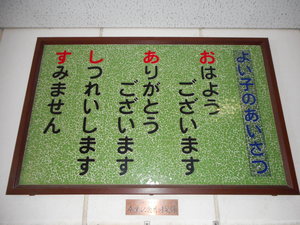 よい子のあいさつ
おはよう
ございます
ありがとう
ございます
しつれいします
すみません